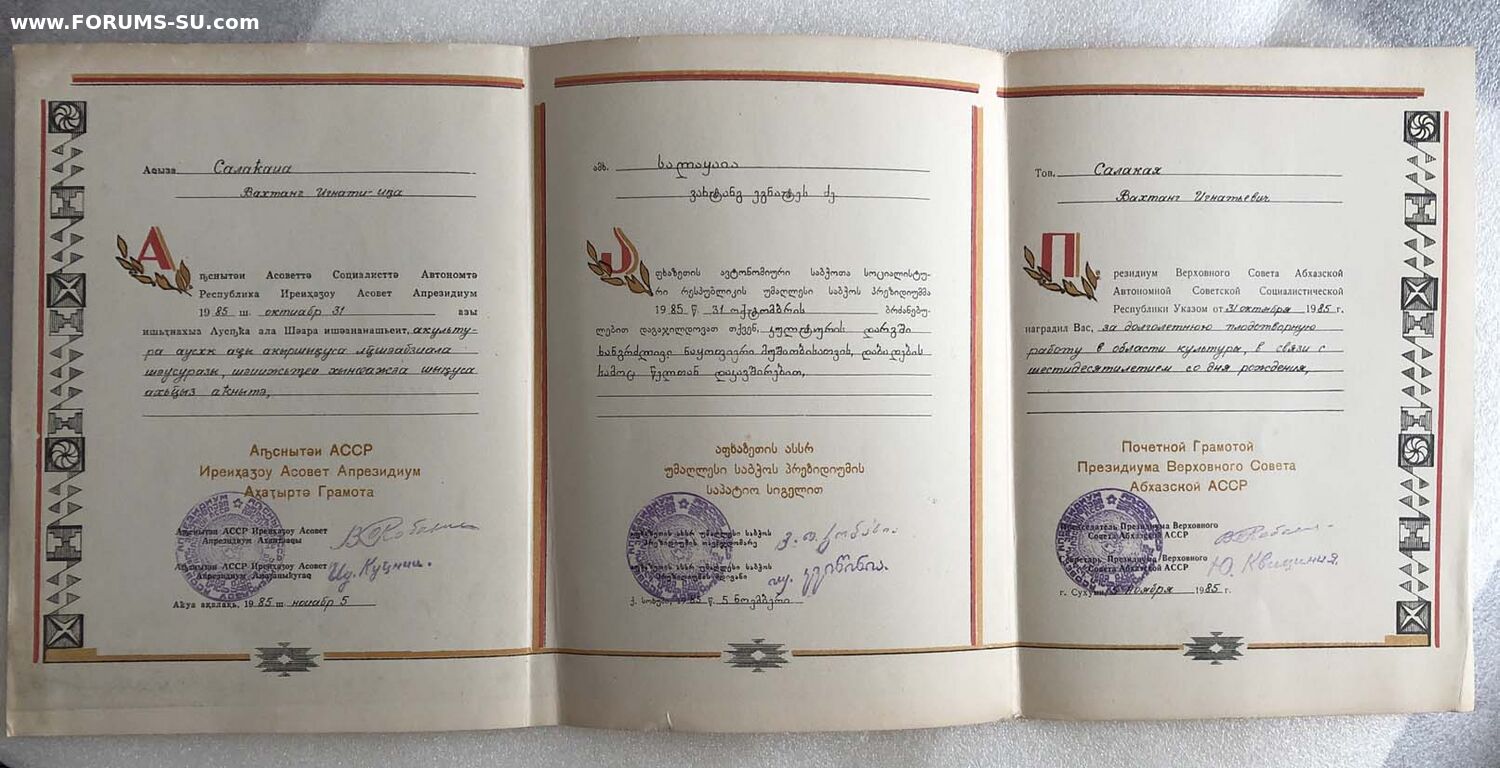 www.FORUMS-SU.com
Аҩыза Салаҟаиа
Вахтанг Игнати-иҧа
Аҧснытәи Асоветтә Социалисттә Автономтә
Республика Иреиҳаӡоу Асовет Апрезидиум
1985 ш. октиабр 31 азы
ала Шәара ишәананашьеит, акульту-
ра аусхк аҿы
ахыҵыз аҟнытә,
Аҧснытәи АССР
Иреиҳаӡоу Асовет Апрезидиум
Аҳаҭыртә Грамота
Аҧснытәи АССР Иреиҳаӡоу Асовет
Апрезидиум Ахантәаҩы
Аҧснытәи АССР Иреиҳаӡоу Асовет
Апрезидиум Амаӡаныҟәгаҩ
Аҟәа ақалақь, 1985 ш ноиабр 5
ამხ. სალაყაია
ვახტანგ ეგნატეს ძე
აფხაზეთის ავტონომიური საბჭოთა სოციალისტუ-
რი რესპუბლიკის უმაღლესი საბჭოს პრეზიდიუმმა
1985 წ. 31 ოქტომბრის ბრძანებუ-
ლებით დაგაჯილდოვათ თქვენ, კულტურის დარგში
ხანგრძლივი ნაყოფიერი მუშაობისათვის, დაბადების
სამოც წელთან დაკავშირებით,
აფხაზეთის ასსრ
უმაღლესი საბჭოს პრეზიდიუმის
საპატიო სიგელით
აფხაზეთის ასსრ უმაღლესი საბჭოს
პრეზიდიუმის თავმჯდომარე
აფხაზეთის ასსრ უმაღლესი საბჭოს
პრეზიდიუმის მდივანი
ქ. სოხუმი, 1985 წ. 5 ნოემბერი
Тов. Салакая
Вахтанг Игнатьевич
Президиум Верховного Совета Абхазской
Автономной Советской Социалистической
Республики Указом от 31 октября 1985 г.
наградил Вас, за долголетнюю плодотворную
работу в области культуры, в связи с
шестидесятилетием со дня рождения,
Почетной Грамотой
Президиума Верховного Совета
Абхазской АССР
Председатель Президиума Верховного
Совета Абхазской АССР
Секретарь Президиума Верховного
Совета Абхазской АССР
Ю. Квициния
г. Сухуми 5 ноября 1985 г.